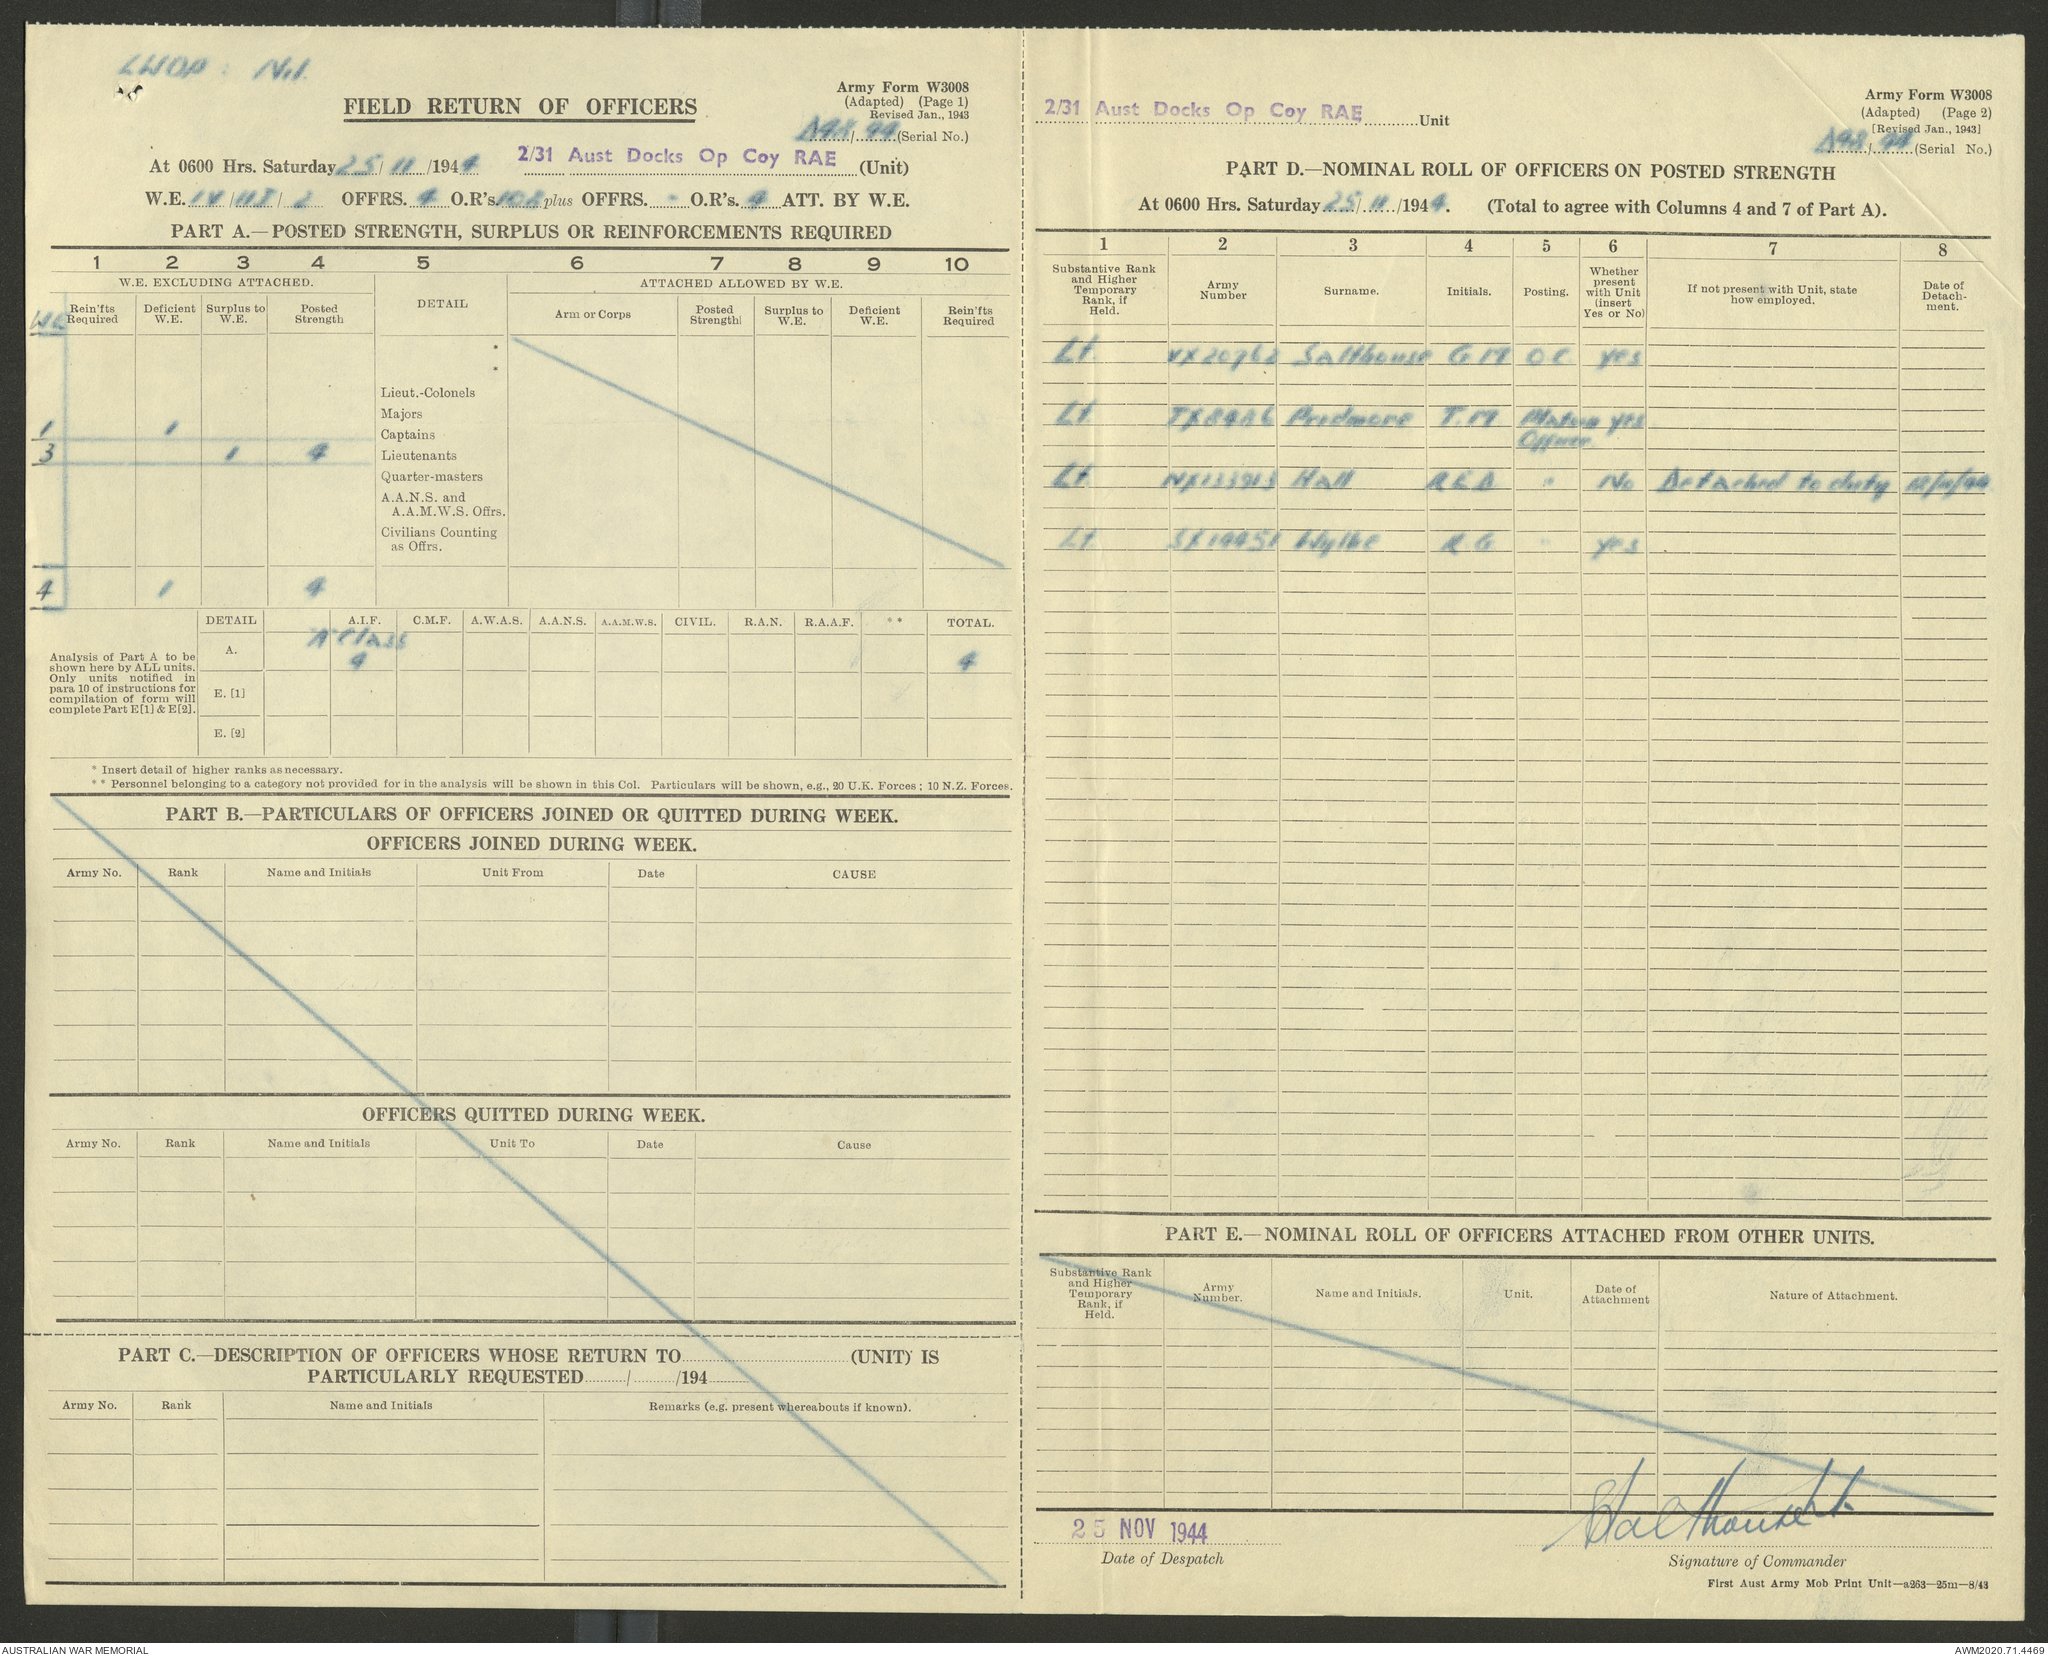 LWOP : Nil
Army Form W3008
(Adapted) (Page 1)
Revised Jan., 1943
FIELD RETURN OF OFFICERS
/44 (Serial No.)
At 0600 Hrs. Saturday 25/11/1944 2/31 Aust Docks Op Coy RAE (Unit)
W.E. IV/ / 2 OFFRS. 4 O.R's. 102 plus OFFRS. - O.R's. 4 ATT. BY W.E.
PART A.—POSTED STRENGTH, SURPLUS OR REINFORCEMENTS REQUIRED
1 2 3 4 5 6 7 8 9 10
W.E. EXCLUDING ATTACHED. DETAIL ATTACHED ALLOWED BY W.E.
WE Rein'fts Required Deficient W.E. Surplus to W.E. Posted Strength Arm or Corps Posted Strength Surplus to W.E. Deficient W.E. Rein'fts Required
*
*
Lieut.-Colonels
Majors
1 1 Captains
3 1 4 Lieutenants
Quarter-masters
A.A.N.S. and
A.A.M.W.S. Offrs.
Civilians Counting
as Offrs.
4 1 4
DETAIL A.I.F. C.M.F. A.W.A.S. A.A.N.S. A.A.M.W.S. CIVIL. R.A.N. R.A.A.F. * * TOTAL.
Analysis of Part A to be
shown here by ALL units.
Only units notified in
para 10 of instructions for
compilation of form will
complete Part E[1] & E[2].
A. A Class 4 4
E. [1]
E. [2]
* Insert detail of higher ranks as necessary.
* * Personnel belonging to a category not provided for in the analysis will be shown in this Col. Particulars will be shown, e.g., 20 U.K. Forces ; 10 N.Z. Forces.
PART B.—PARTICULARS OF OFFICERS JOINED OR QUITTED DURING WEEK.
OFFICERS JOINED DURING WEEK.
Army No. Rank Name and Initials Unit From Date CAUSE
OFFICERS QUITTED DURING WEEK.
Army No. Rank Name and Initials Unit To Date Cause
PART C.—DESCRIPTION OF OFFICERS WHOSE RETURN TO (UNIT) IS
PARTICULARLY REQUESTED / /194
Army No. Rank Name and Initials Remarks (e.g. present whereabouts if known).
2/31 Aust Docks Op Coy RAE Unit
Army Form W3008
(Adapted) (Page 2)
[Revised Jan., 1943]
/44 (Serial No.)
PART D.—NOMINAL ROLL OF OFFICERS ON POSTED STRENGTH
At 0600 Hrs. Saturday 25/11/1944. (Total to agree with Columns 4 and 7 of Part A).
1 2 3 4 5 6 7 8
Substantive Rank and Higher Temporary Rank, if Held. Army Number Surname. Initials. Posting. Whether present with Unit (insert Yes or No) If not present with Unit, state how employed. Date of Detachment.
Lt. VX20762 Salthouse G M O.C. Yes
Lt. Pridmore T. M Officer Yes
Lt. NX133913 Hall R E D " No Detached to duty
Lt. SX19451 Wylie R G " Yes
PART E.—NOMINAL ROLL OF OFFICERS ATTACHED FROM OTHER UNITS.
Substantive Rank and Higher Temporary Rank, if Held. Army Number. Name and Initials. Unit. Date of Attachment Nature of Attachment.
25 NOV 1944
Date of Despatch
GSalthouse Lt.
Signature of Commander
First Aust Army Mob Print Unit—a263—25m—8/43
AUSTRALIAN WAR MEMORIAL
AWM2020.71.4469